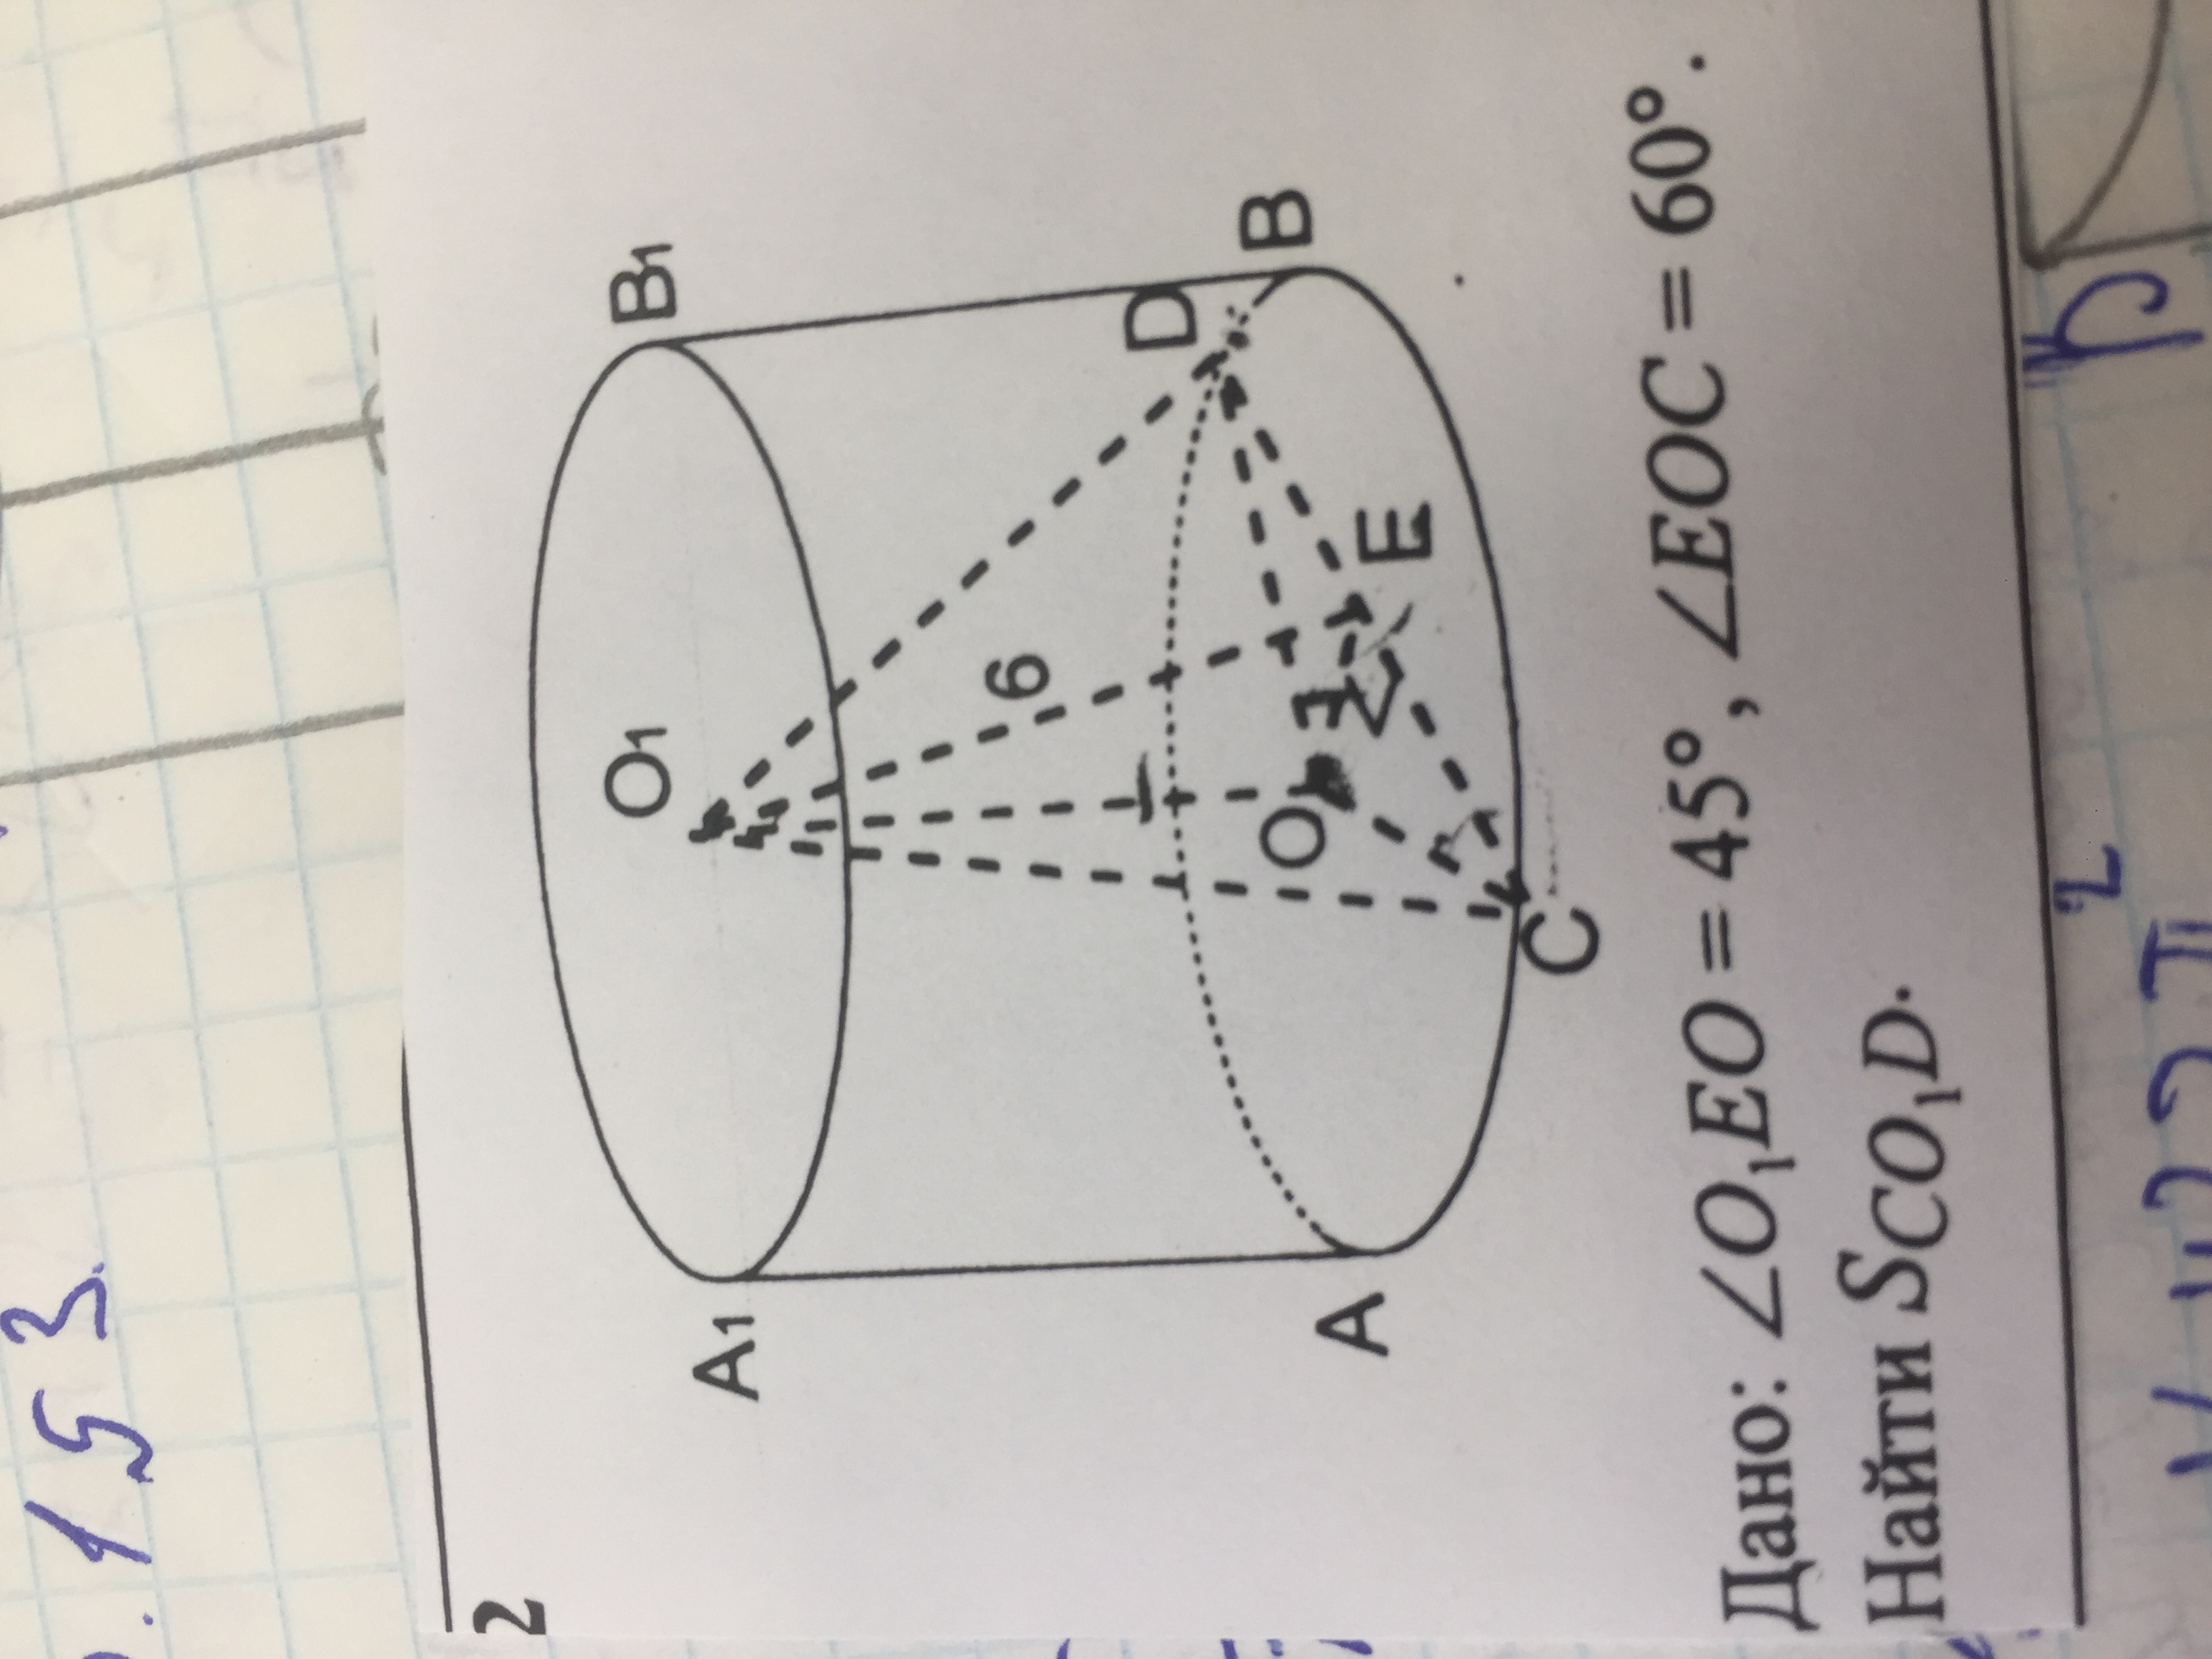 2
O₁
B₁
A₁
6
D
B
O
E
A
C
Дано: ∠O₁EO = 45°, ∠EOC = 60°.
Найти SCO₁D.